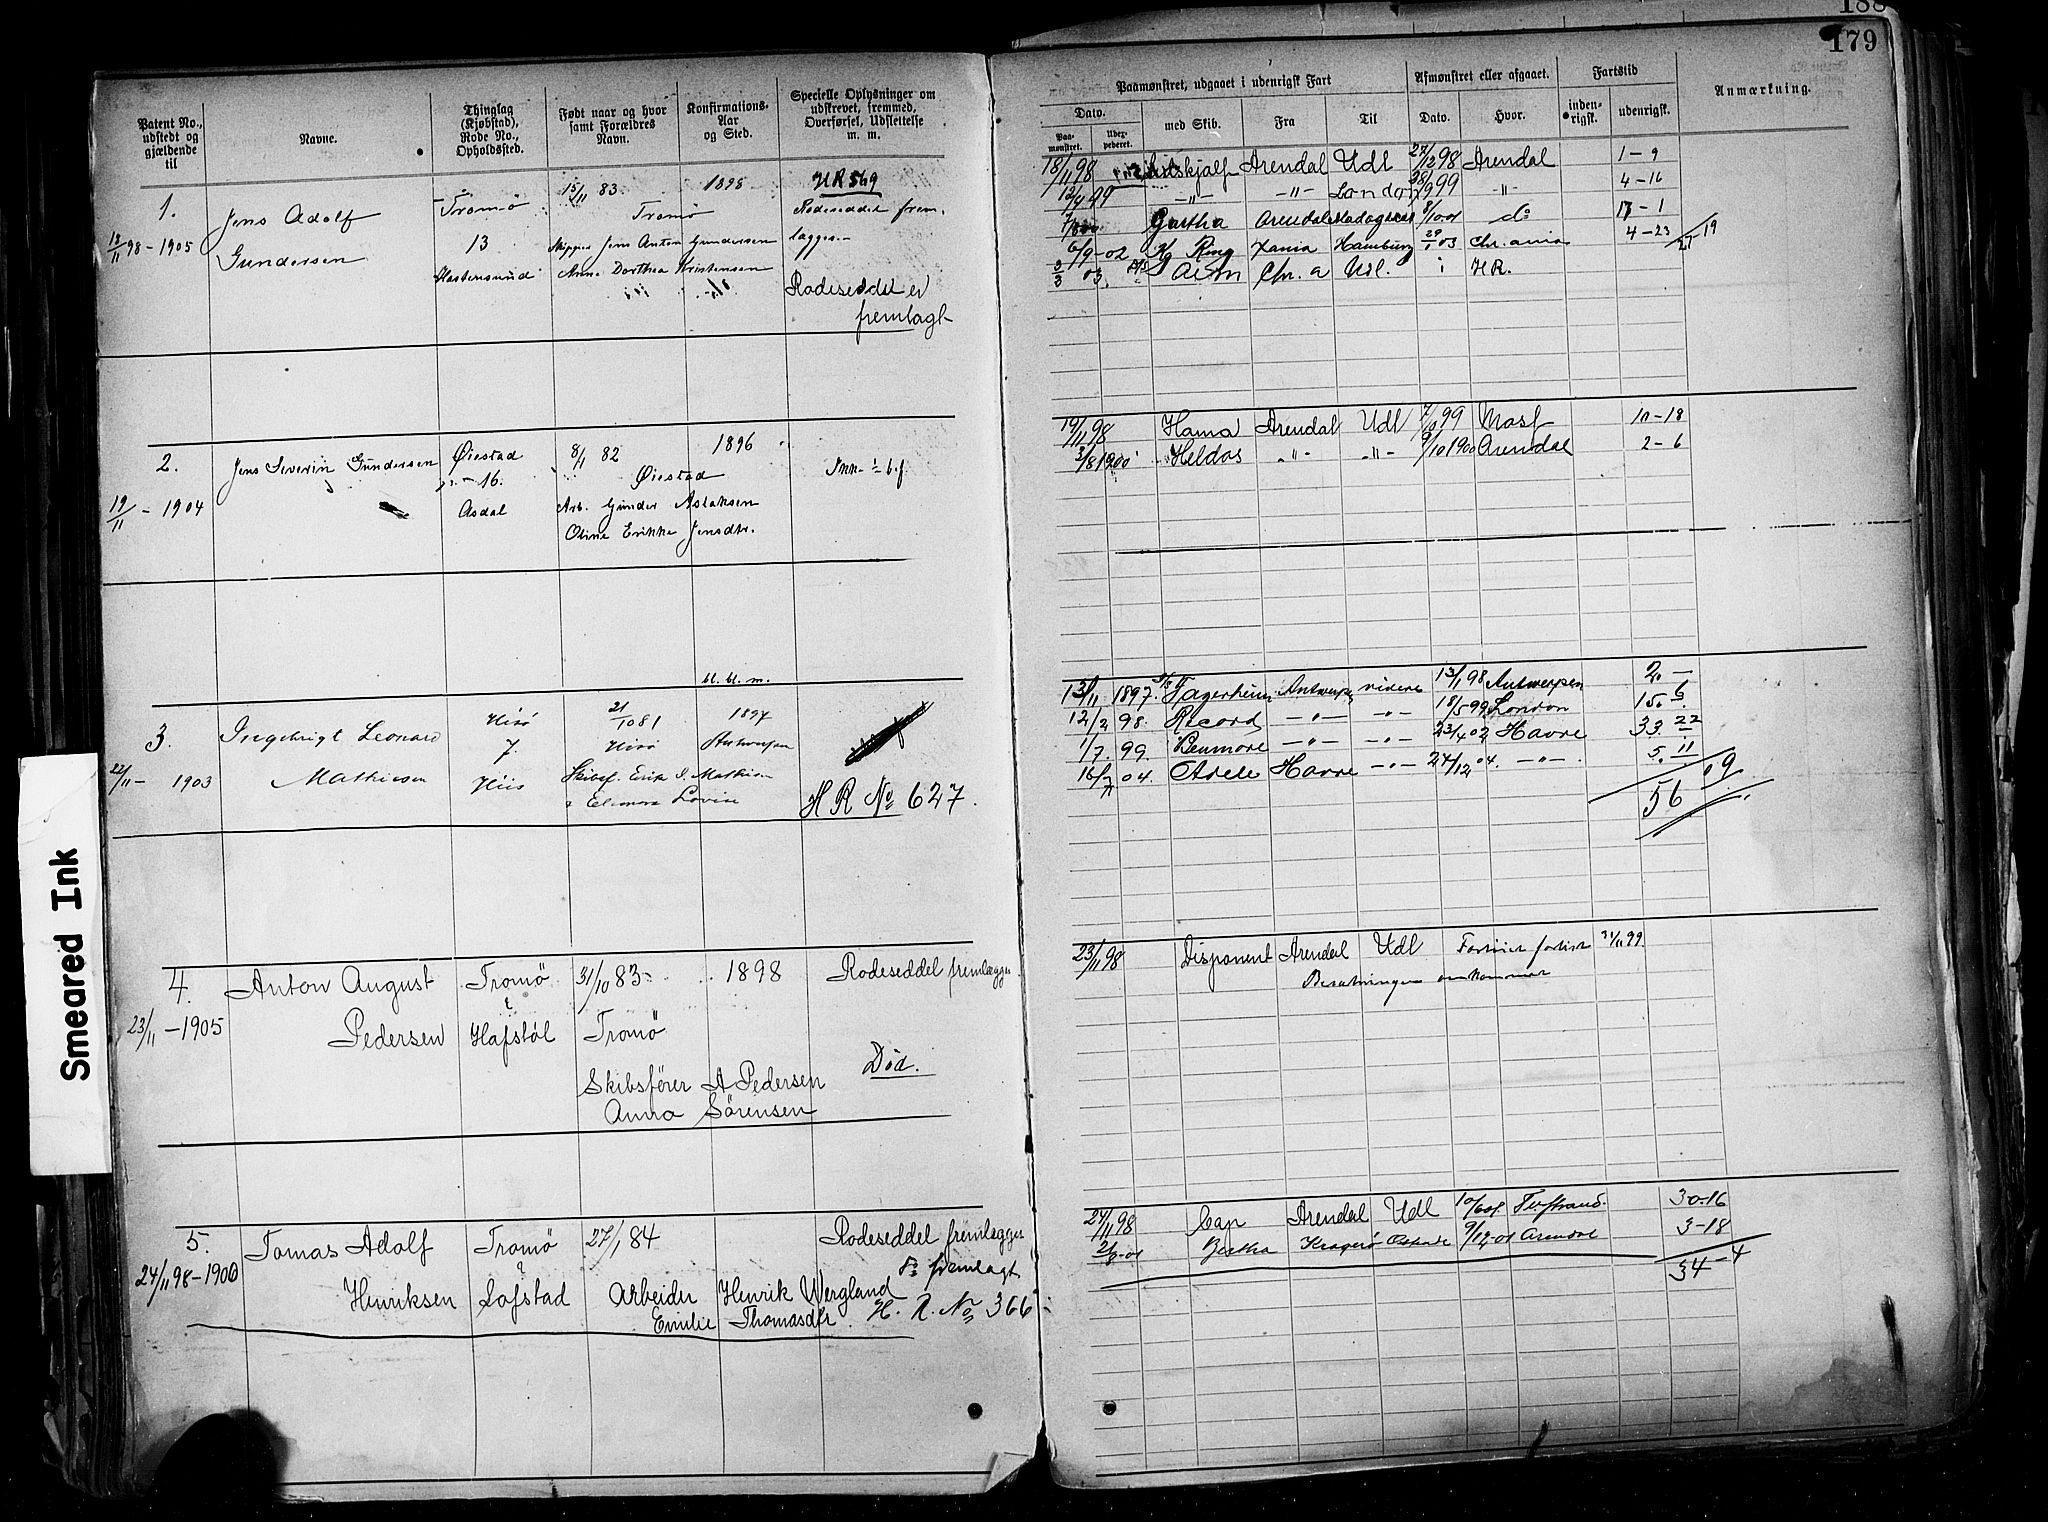 188
179
Patent No., udstedt og gjældende til
Navne.
Thinglag (Kjøbstad), Rode No., Opholdssted.
Født naar og hvor samt Forældres Navn.
Konfirmations-Aar og Sted.
Specielle Oplysninger om udskrevet, fremmed, Overførsel, Udslettelse m. m.
Paamønstret, udgaaet i udenrigsk Fart
Afmønstret eller afgaaet.
Fartstid
Anmærkning.
Dato.
Paa-mønstret.
Udex-pederet.
med Skib.
Fra
Til
Dato.
Hvor.
inden-rigsk.
udenrigsk.
1.
18/11 98 - 1905
Jens Adolf
Gundersen
Tromø
13
15/11 83
Tromø
Skipper Jens Anton Gundersen
Anne Dorthea Kristensen
1898
HR 569
Rodeseddel frem-
lægges.-
Rodeseddel er
fremlagt
18/11 98 Arendal Udl 27/12 98 Arendal 1-9
12/4 99 -"- -"- London 99 -"- 4-16
Gartha 8/10 01 do 17-1
6/9-02 Kg Ring Xania Hamburg 29/1 03 Chr.ania 4-23
3/3 03. Chr.a Udl. i HR.
2.
19/11 - 1904
Jens Severin Gundersen
Øiestad
16.
Asdal
8/1 82
Øiestad
Arb. Gunder Aslaksen
Oline Erikke Jensdtr.
1896
19/11 98 Hama Arendal Udl 7/10 99 Mosf 10-18
3/8 1900 Heldos -"- -"- 9/10 1900 Arendal 2-6
3.
22/11 - 1903
Ingebrigt Leonard
Mathiesen
Hisö
7.
Hiis
21/10 81
Hisö
Skibsf. Erik I. Mathisen
Elenora Lovise
bl. bl. m.
1897
Antwerpen
HR No 627.
13/11 1897. Fagerheim Antwerpen videre 13/1 98 Antwerpen 2.-
12/2 98. Record -"- -"- 18/5 99 London 15.6
1/7. 99. Benmore -"- -"- 23/4 02 Havre 33.22
16/7 04. Adele Havre -"- 24/12 04. -"- 5.11
56 09
4.
23/11 - 1905
Anton August
Pedersen
Tromö
Hafstöl
31/10 83
Tromö
Skibsförer A Pedersen
Anna Sörensen
1898
Rodeseddel fremlægges
Död.
23/11 98 Disponent Arendal Udl forlist 99
Besætningen omkommet
5.
24/11 98 - 1906
Tomas Adolf
Henriksen
Tromö
Lofstad
27/1 84
Arbeider Henrik Wergland
Emilie Thomasdtr.
Rodeseddel fremlægges
fremlagt
H. R. No 366
24/11 98 Cap Arendal Udl 30-16
Bertha Kragerö 9/12-01 Arendal 3-18
34-4
Smeared Ink